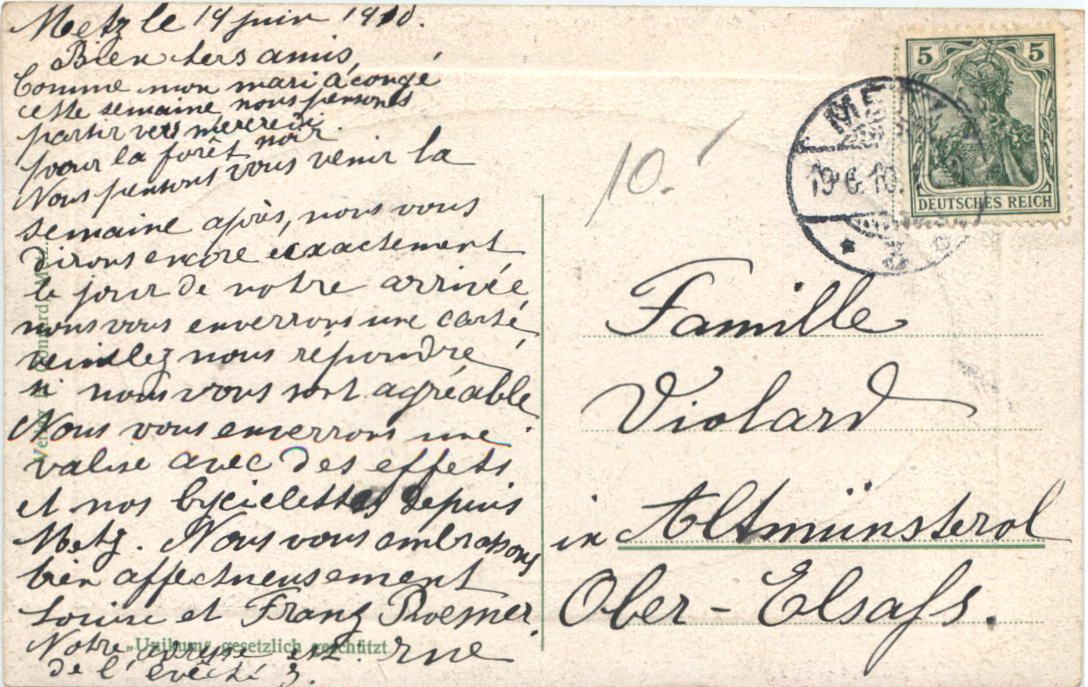 Metz le 19 juin 1910.
Bien chers amis,
Comme mon mari a congé
cette semaine nous pensons
partir vers mercredi
pour la forêt noir.
Nous pensons vous venir la
semaine après, nous vous
dirons encore exactement
le jour de notre arrivée
nous vous enverrons une carte,
veuillez nous répondre
si nous vous sont agréable.
Nous vous enverrons une
valise avec des effets
et nos byciclettes depuis
Metz. Nous vous embrassons
bien affectueusement
Louise et Franz Roemer.
Notre adresse est rue
de l'évêché 3.
"Unikum" gesetzlich geschützt
10.
5 5
DEUTSCHES REICH
METZ
19.6.10.
Famille
Violard
in Altmünsterol
Ober-Elsaſs.